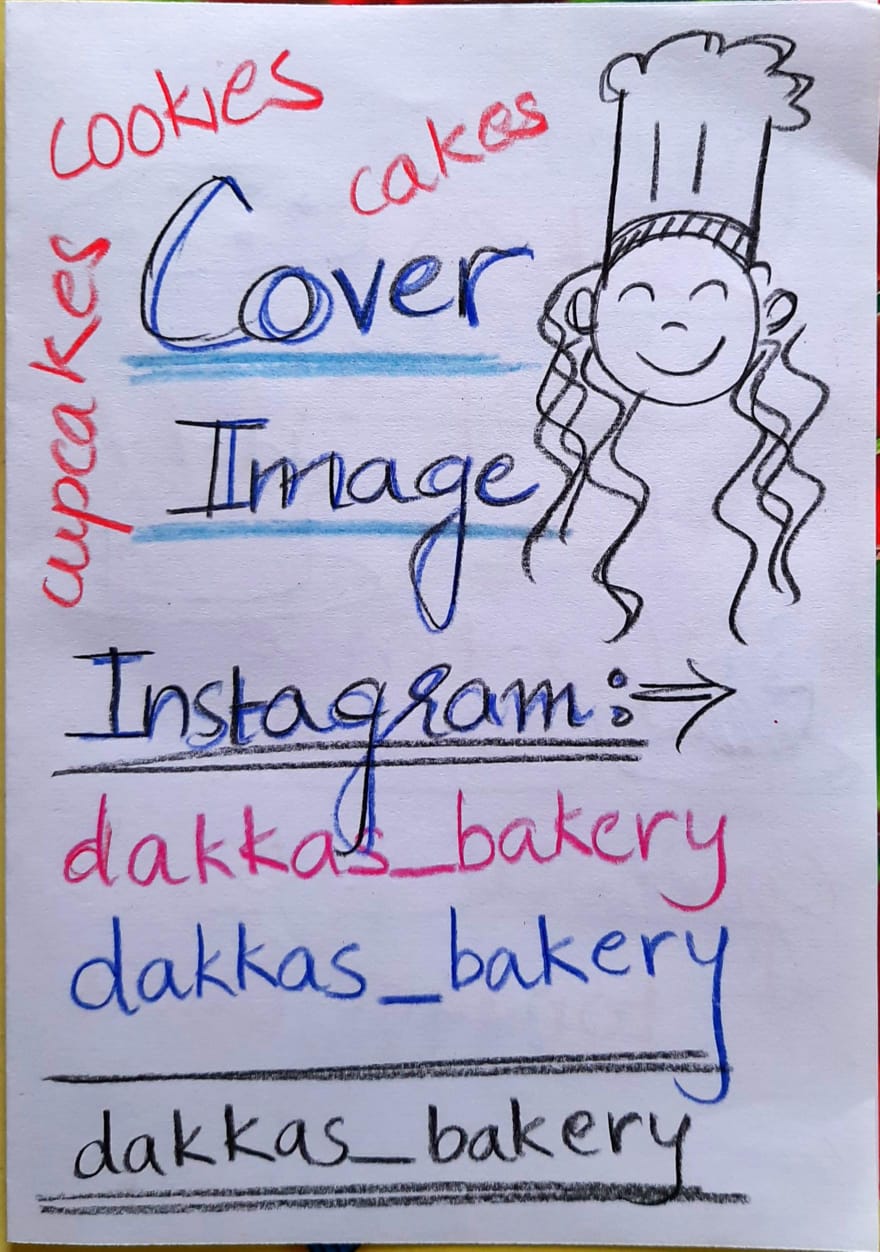 cookies
cakes
cupcakes
Cover
Image
Instagram:→
dakkas_bakery
dakkas_bakery
dakkas_bakery